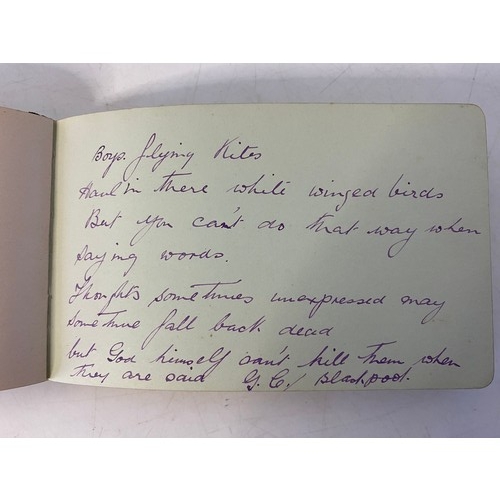 Boys. flying Kites
Haul in there white winged birds
But you can't do that way when
saying words.
Thoughts sometimes unexpressed may
sometime fall back dead
but God himself can't kill them when
they are said G. C. / Blackpool.